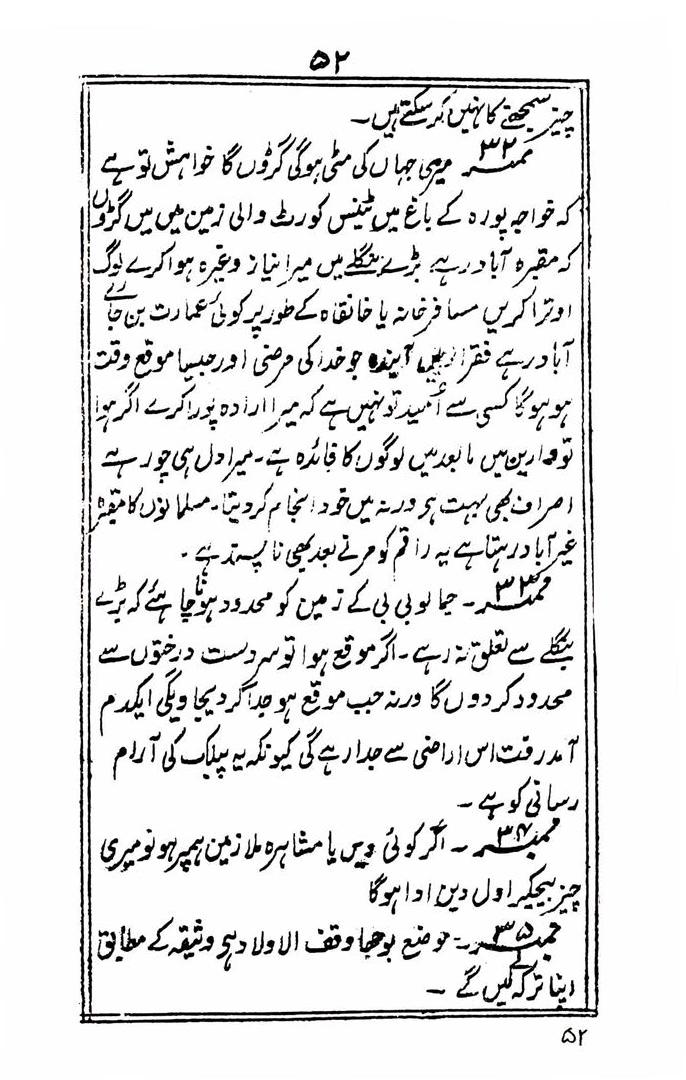 ۵۲
چیز سمجھنے کا نہیں کر سکتے ہیں۔
نمبر ۳۲ میری جہاں کی مٹی ہوگی گڑوں گا خواہش تو ہے
کہ خواجہ پورہ کے باغ میں ٹینس کورٹ والی زمین میں میں گڑوں
کہ مقبرہ آباد رہے بڑے بنگلے میں میرا نیاز وغیرہ ہوا کرے لوگ
اوترا کریں مسافرخانہ یا خانقاہ کے طور پر کوئی عمارت بن جائے
آباد رہے فقرا رہیں آیندہ جو خدا کی مرضی اور جیسا موقع وقت
ہو ہوگا کسی سے اُمید تو نہیں ہے کہ میرا ارادہ پورا کرے اگر ہوا
تو دارین میں مابعد میں لوگوں کا فائدہ ہے۔ میرا دل ہی چور ہے
اصراف بھی بہت ہو ورنہ میں خود انجام کر دیتا۔ مسلمانوں کا مقبرہ
غیر آباد رہتا ہے یہ راقم کو مرتے بعد بھی ناپسند ہے۔
نمبر ۳۳۔ جمالو بی بی کے زمین کو محدود ہونا چاہئے کہ بڑے
بنگلے سے تعلق نہ رہے۔ اگر موقع ہوا تو سردست درختوں سے
محدود کردوں گا ورنہ جب موقع ہو جدا کر دیجاویگی ایکدم
آمدرفت اس اراضی سے جدا رہے گی کیونکہ یہ پبلک کی آرام
رسانی کو ہے۔
نمبر ۳۴۔ اگر کوئی دین یا مشاہرہ ملازمین ہمپر ہو تو میری
چیز بیچکر اول دین ادا ہوگا
نمبر ۳۵۔ موضع بوجھا وقف الاولاد ہی وثیقہ کے مطابق
اپنا ترکہ لیں گے۔
۵۲